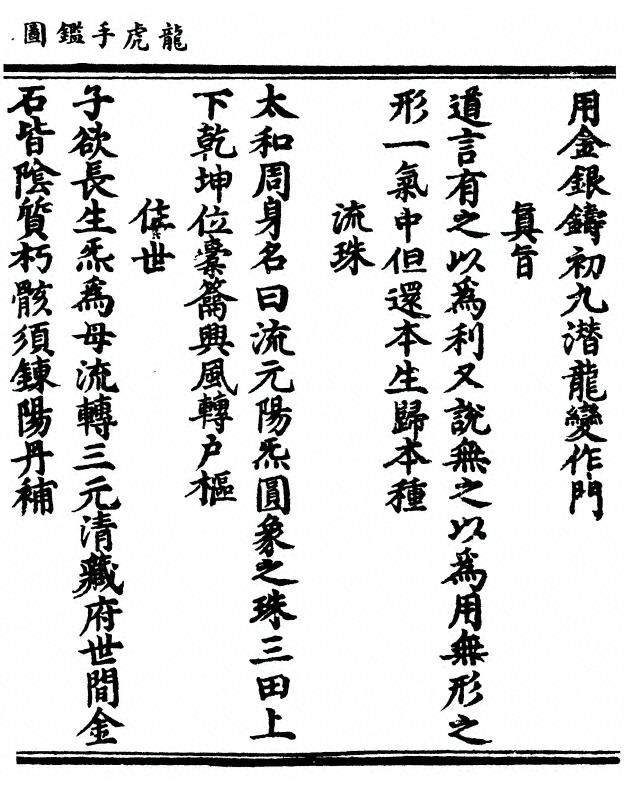 龍虎手鑑圖
用金銀鑄初九潛龍變作門
眞旨
道言有之以爲利又說無之以爲用無形之
形一氣中但還本生歸本種
流珠
太和周身名曰流元陽炁圓象之珠三田上
下乾坤位橐籥興風轉户樞
住世
子欲長生炁爲母流轉三元清藏府世間金
石皆陰質朽骸須鍊陽丹補